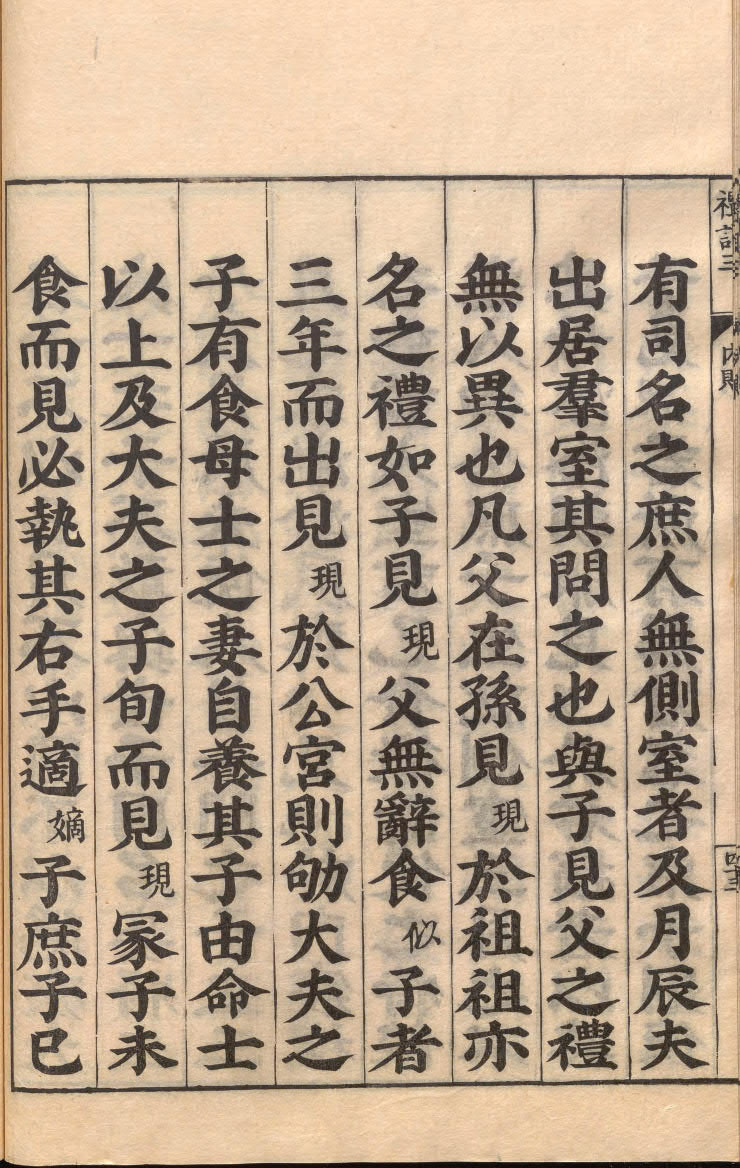 禮記三 內則
有司名之庶人無側室者及月辰夫
出居羣室其問之也與子見父之禮
無以異也凡父在孫見現於祖祖亦
名之禮如子見現父無辭食似子者
三年而出見現於公宮則劬大夫之
子有食母士之妻自養其子由命士
以上及大夫之子旬而見現冢子未
食而見必執其右手適嫡子庶子已